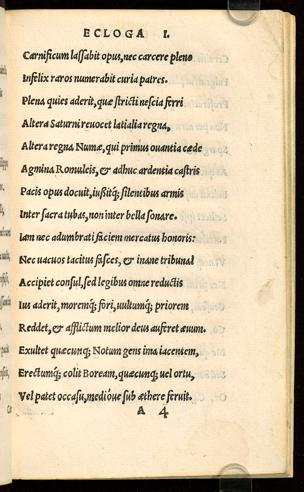 ECLOGA I.
Carnificum lassabit opus, nec carcere pleno
Infelix raros numerabit curia patres.
Plena quies aderit, quæ stricti nescia ferri
Altera Saturni revocet latialia regna,
Altera regna Numæ, qui primus ovantia cæde
Agmina Romuleis, & adhuc ardentia castris
Pacis opus docuit, iussitq; silentibus armis
Inter sacra tubas, non inter bella sonare.
Iam nec adumbrati faciem mercatus honoris:
Nec vacuos tacitus fasces, & inane tribunal
Accipiet consul, sed legibus omne reductis
Ius aderit, moremq; fori, vultumq; priorem
Reddet, & afflictum melior deus auferet ævum.
Exultet quæcunq; Notum gens ima iacentem,
Erectumq; colit Boream, quæcunq; vel ortu,
Vel patet occasu, medióve sub æthere fervit.
A 4